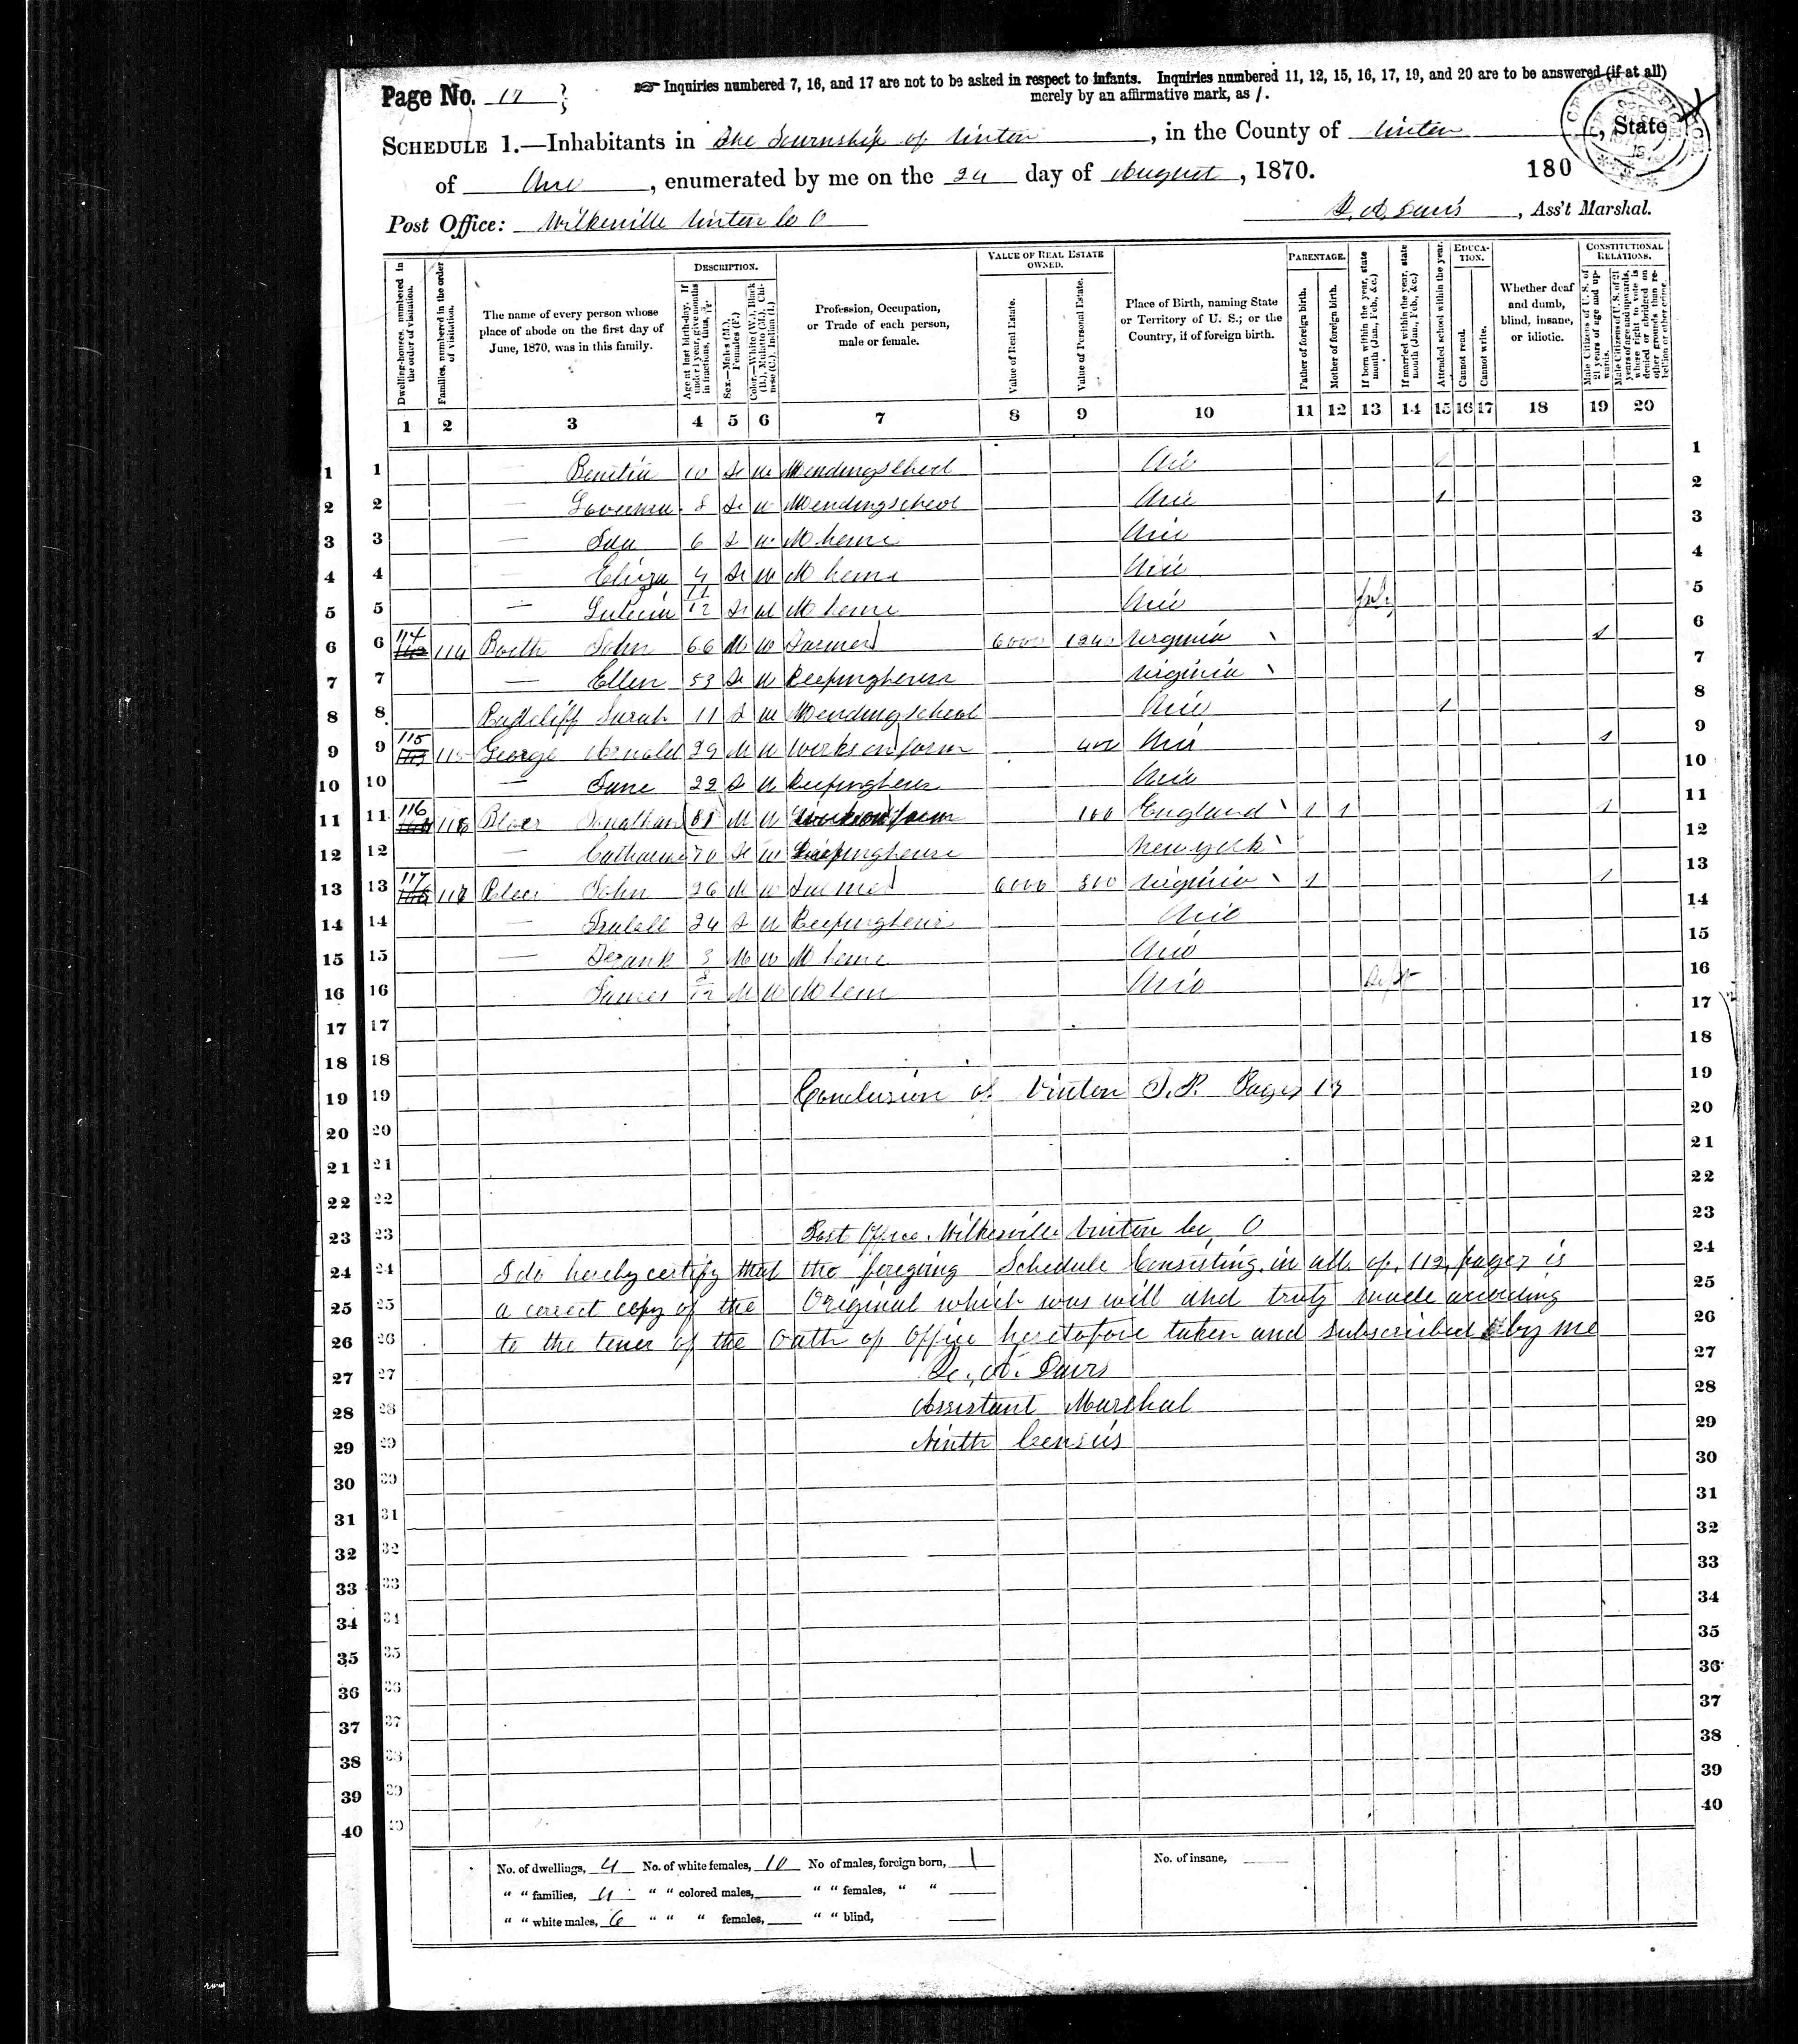 Page No. 17
☞ Inquiries numbered 7, 16, and 17 are not to be asked in respect to infants. Inquiries numbered 11, 12, 15, 16, 17, 19, and 20 are to be answered (if at all)
merely by an affirmative mark, as /.
SCHEDULE 1.—Inhabitants in The Township of Vinton, in the County of Vinton, State
of Ohio, enumerated by me on the 24 day of August, 1870. 180
Post Office: Wilkesville Vinton Co O Davis, Ass't Marshal.
Dwelling-houses, numbered in the order of visitation.
Families, numbered in the order of visitation.
The name of every person whose place of abode on the first day of June, 1870, was in this family.
DESCRIPTION.
Age at last birth-day. If under 1 year, give months in fractions, thus, 3/12.
Sex.—Males (M.), Females (F.)
Color.—White (W.), Black (B.), Mulatto (M.), Chinese (C.), Indian (I.)
Profession, Occupation, or Trade of each person, male or female.
VALUE OF REAL ESTATE OWNED.
Value of Real Estate.
Value of Personal Estate.
Place of Birth, naming State or Territory of U. S.; or the Country, if of foreign birth.
PARENTAGE.
Father of foreign birth.
Mother of foreign birth.
If born within the year, state month (Jan., Feb., &c.)
If married within the year, state month (Jan., Feb., &c.)
Attended school within the year.
EDUCATION.
Cannot read.
Cannot write.
Whether deaf and dumb, blind, insane, or idiotic.
CONSTITUTIONAL RELATIONS.
Male Citizens of U. S. of 21 years of age and upwards.
Male Citizens of U. S. of 21 years of age and upwards, whose right to vote is denied or abridged on other grounds than rebellion or other crime.
1 2 3 4 5 6 7 8 9 10 11 12 13 14 15 16 17 18 19 20
1 — 10 F W Attending School Ohio 1 1
2 — 8 F W Attending school Ohio 1 2
3 — 6 F W At home Ohio 3
4 — Eliza 4 F W At home Ohio 4
5 — 11/12 F W At home Ohio July 5
6 114 114 Booth John 66 M W Farmer 6000 1240 Virginia 1 6
7 — Ellen 53 F W Keeping house Virginia 7
8 Radcliff Sarah 11 F W Attending school Ohio 1 8
9 115 115 George Arnold 29 M W Works on farm 400 Ohio 1 9
10 — Jane 22 F W Keeping house Ohio 10
11 116 116 Jonathan M W Work on farm 100 England 1 1 1 11
12 — Catharine 70 F W Keeping house New York 12
13 117 117 John 36 M W Farmer 6000 800 Virginia 1 1 13
14 — Isabell 24 F W Keeping house Ohio 14
15 — Frank 3 M W At home Ohio 15
16 James M W At home Ohio Sept 16
17 17
18 18
19 Conclusion of Vinton T.P. Pages 17 19
20 20
21 21
22 22
23 Post Office Wilkesville Vinton Co, O 23
24 I do hereby certify that the foregoing Schedule Consisting in all of 112 pages is 24
25 a correct copy of the Original which was will and truly made according 25
26 to the tenor of the Oath of Office heretofore taken and subscribed by me 26
27 Davis 27
28 Assistant Marshal 28
29 Ninth Census 29
30 30
31 31
32 32
33 33
34 34
35 35
36 36
37 37
38 38
39 39
40 40
No. of dwellings, 4 No. of white females, 10 No of males, foreign born, 1 No. of insane,
" " families, 4 " " colored males, " " females, " "
" " white males, 6 " " " females, " " blind,